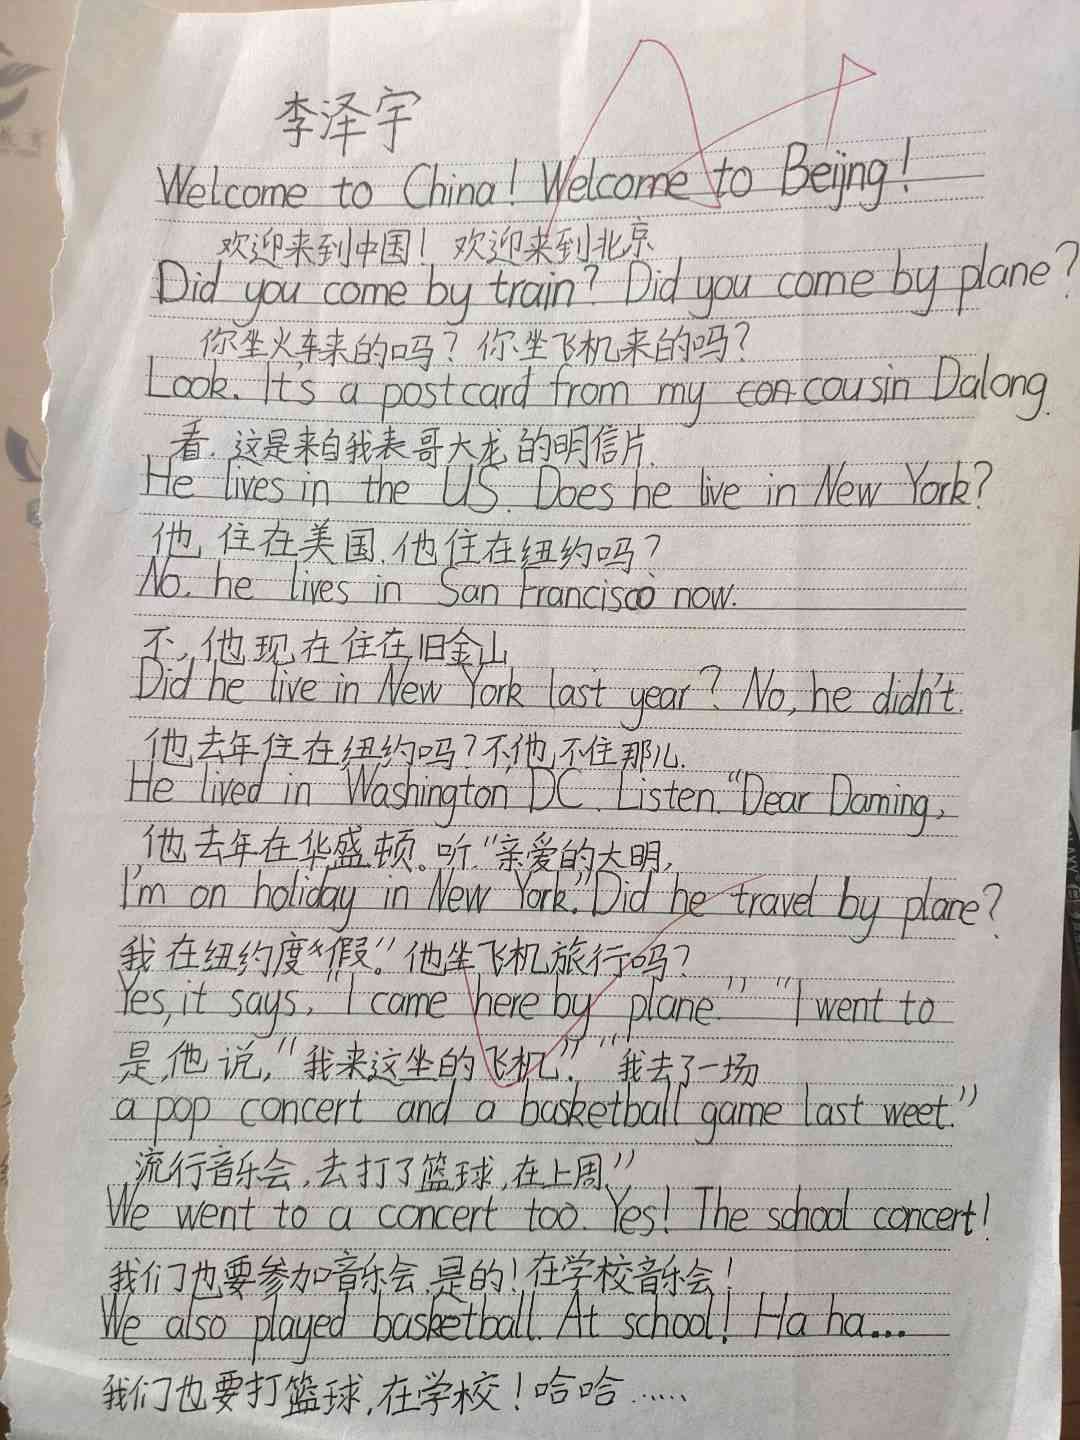 李泽宇
Welcome to China! Welcome to Beijng!
欢迎来到中国! 欢迎来到北京
Did you come by train? Did you come by plane?
你坐火车来的吗? 你坐飞机来的吗?
Look. It's a postcard from my cousin Dalong.
看. 这是来自我表哥大龙的明信片.
He lives in the US. Does he live in New York?
他住在美国. 他住在纽约吗?
No. he lives in San Francisco now.
不, 他现在住在旧金山
Did he live in New York last year? No, he didn't.
他去年住在纽约吗? 不,他不住那儿.
He lived in Washington DC. Listen. "Dear Daming,
他去年在华盛顿。听."亲爱的大明,
I'm on holiday in New York." Did he travel by plane?
我在纽约度假。" 他坐飞机旅行吗?
Yes, it says, "I came here by plane." "I went to
是,他说,"我来这坐的飞机". "我去了一场
a pop concert and a basketball game last weet."
流行音乐会,去打了篮球,在上周."
We went to a concert too. Yes! The school concert!
我们也要参加音乐会.是的!在学校音乐会!
We also played basketball. At school! Ha ha...
我们也要打篮球,在学校!哈哈……